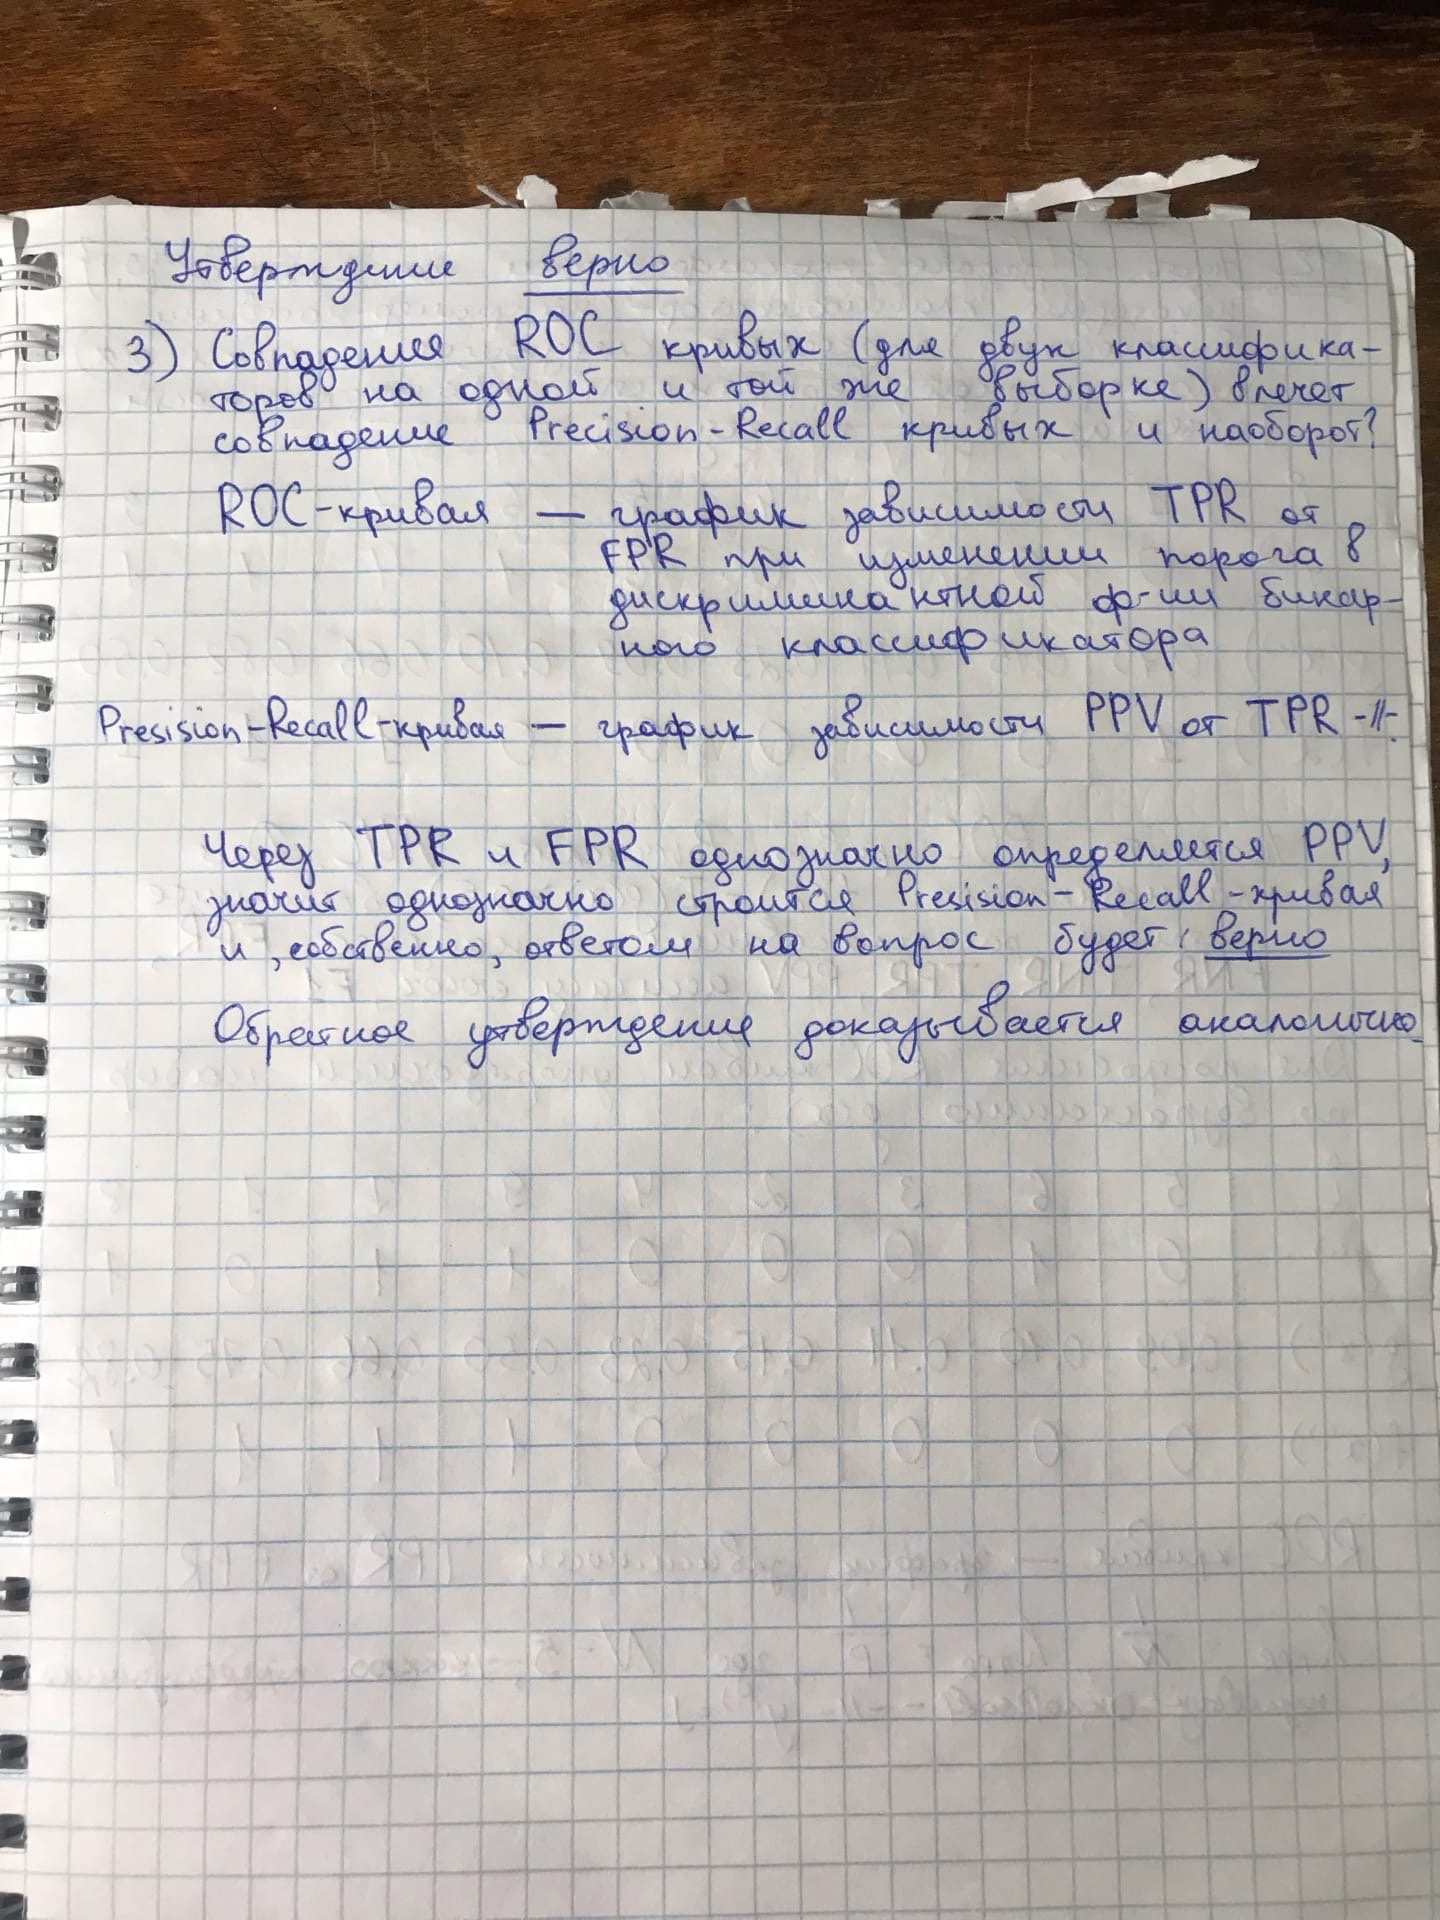 Утверждение верно
3) Совпадения ROC кривых (для двух классифика-
торов на одной и той же выборке) влечет
совпадение Precision-Recall кривых и наоборот?
ROC-кривая — график зависимости TPR от
FPR при изменении порога в
дискриминантной ф-ии бинар-
ного классификатора
Presision-Recall-кривая — график зависимости PPV от TPR -//-.
Через TPR и FPR однозначно определяется PPV,
значит однозначно строится Presision-Recall-кривая
и, собственно, ответом на вопрос будет: верно
Обратное утверждение доказывается аналогично.